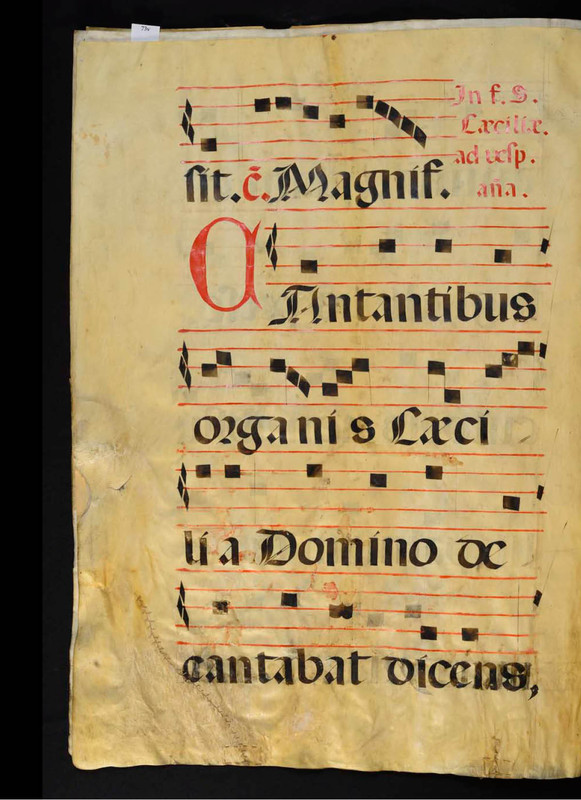 In f. S.
Cæciliæ.
ad vesp.
aña.
sit. c̃. Magnif.
CAntantibus
organi s Cæci
li a Domino de
cantabat dicens,